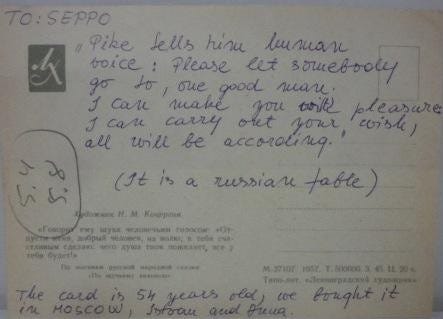 TO: SEPPO
„Pike tells him human
voice: Please let somebody
go to, one good man.
I can make you with pleasure
I can carry out your wish,
all will be according."
(It is a russian fable)
5.4
5.8
Художник Н. М. Кочергин
«Говорит ему щука человечьим голосом: «От-
пусти меня, добрый человек, на волю; я тебя сча-
стливым сделаю: чего душа твоя пожелает, все у
тебя будет!»
По мотивам русской народной сказки
«По щучьему велению»
М-37102 1957. Т. 500000. З. 45. Ц. 20 к.
Типо-лит. «Ленинградский художник»
The card is 54 years old, we bought it
in MOSCOW, Istvan and Anna.